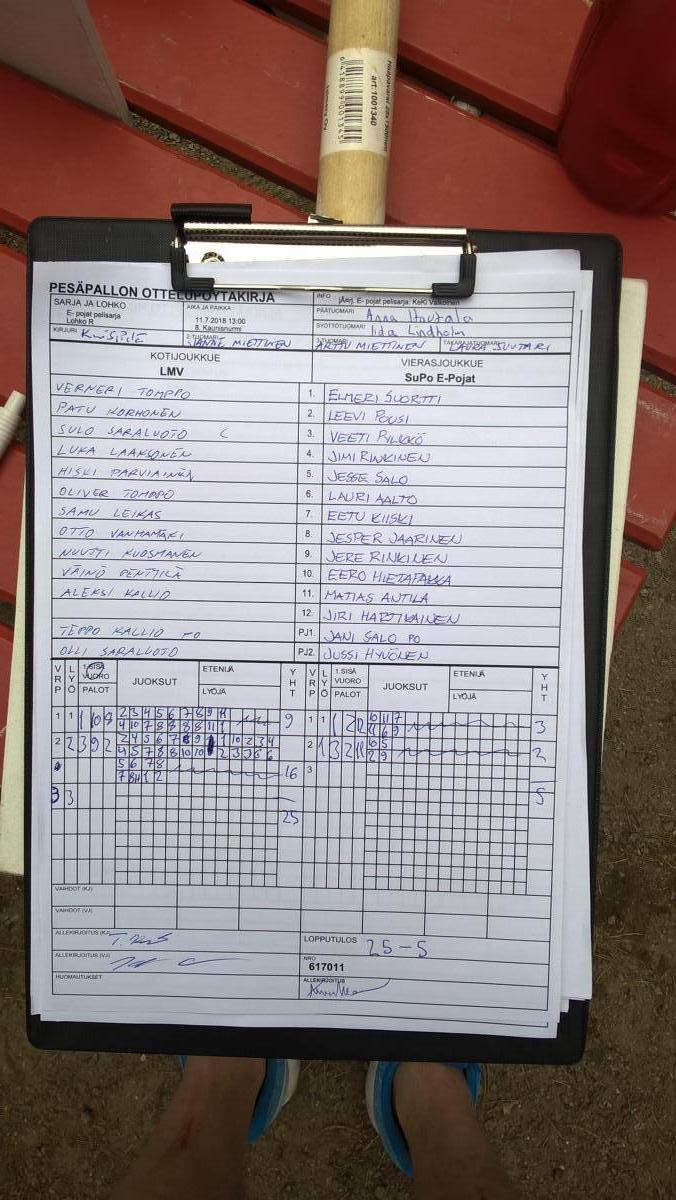 art.1001340
6 418899 001345
PESÄPALLON OTTELUPÖYTÄKIRJA
INFO
jÄrj. E- pojat pelisarja: KeKi Valkoinen
SARJA JA LOHKO
E- pojat pelisarja
Lohko R
AIKA JA PAIKKA:
11.7.2018 13:00
8. Kaunisnurmi
PÄÄTUOMARI Anna
SYÖTTÖTUOMARI Iida Lindholm
KIRJURI
2-TUOMARI JANNE MIETTINEN
3-TUOMARI ARTTU MIETTINEN
TAKARAJATUOMARI LAURA SUUTARI
KOTIJOUKKUE
LMV
VIERASJOUKKUE
SuPo E-Pojat
VERNERI TOMPPO 1. ELMERI SUORTTI
PATU KORHONEN 2. LEEVI POUSI
SULO SARALUOTO C 3. VEETI PYLKKÖ
LUKA LAAKSONEN 4. JIMI RINKINEN
HISKI PARVIAINEN 5. JESSE SALO
OLIVER TOMPPO 6. LAURI AALTO
SAMU LEIKAS 7. EETU KIISKI
OTTO VANHAMÄKI 8. JESPER JAARINEN
NUUTTI KUOSMANEN 9. JERE RINKINEN
VÄINÖ PENTTILÄ 10. EERO HIETAPAKKA
ALEKSI KALLIO 11. MATIAS ANTILA
12. JIRI HARTIKAINEN
TEPPO KALLIO PJ1. JANI SALO PO
OLLI SARALUOTO PJ2. JUSSI HYVÖNEN
VRP LYÖ 1.SISÄ VUORO PALOT JUOKSUT ETENIJÄ LYÖJÄ YHT VRP LYÖ 1.SISÄ VUORO PALOT JUOKSUT ETENIJÄ LYÖJÄ YHT
1 2 3 4 5 6 7 8 9 11 9 1 3
4 10 7 8 8 8 11 1
2 2 4 5 6 7 8 9 1 10 2 3 4 2 2
5 6 7 8 16 3
3 3 5
25
VAIHDOT (KJ)
VAIHDOT (VJ)
ALLEKIRJOITUS (KJ)
LOPPUTULOS 25-5
ALLEKIRJOITUS (VJ)
NRO
617011
HUOMAUTUKSET
ALLEKIRJOITUS